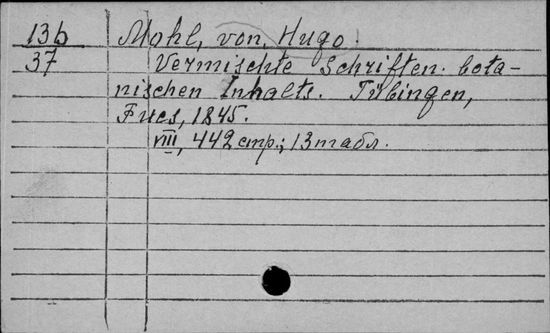 13b Mohl, von, Hugo.
37 Vermischte Schriften bota-
nischen Inhalts. Tübingen,
Fues, 1845.
VIII, 442 стр.; 13 табл.